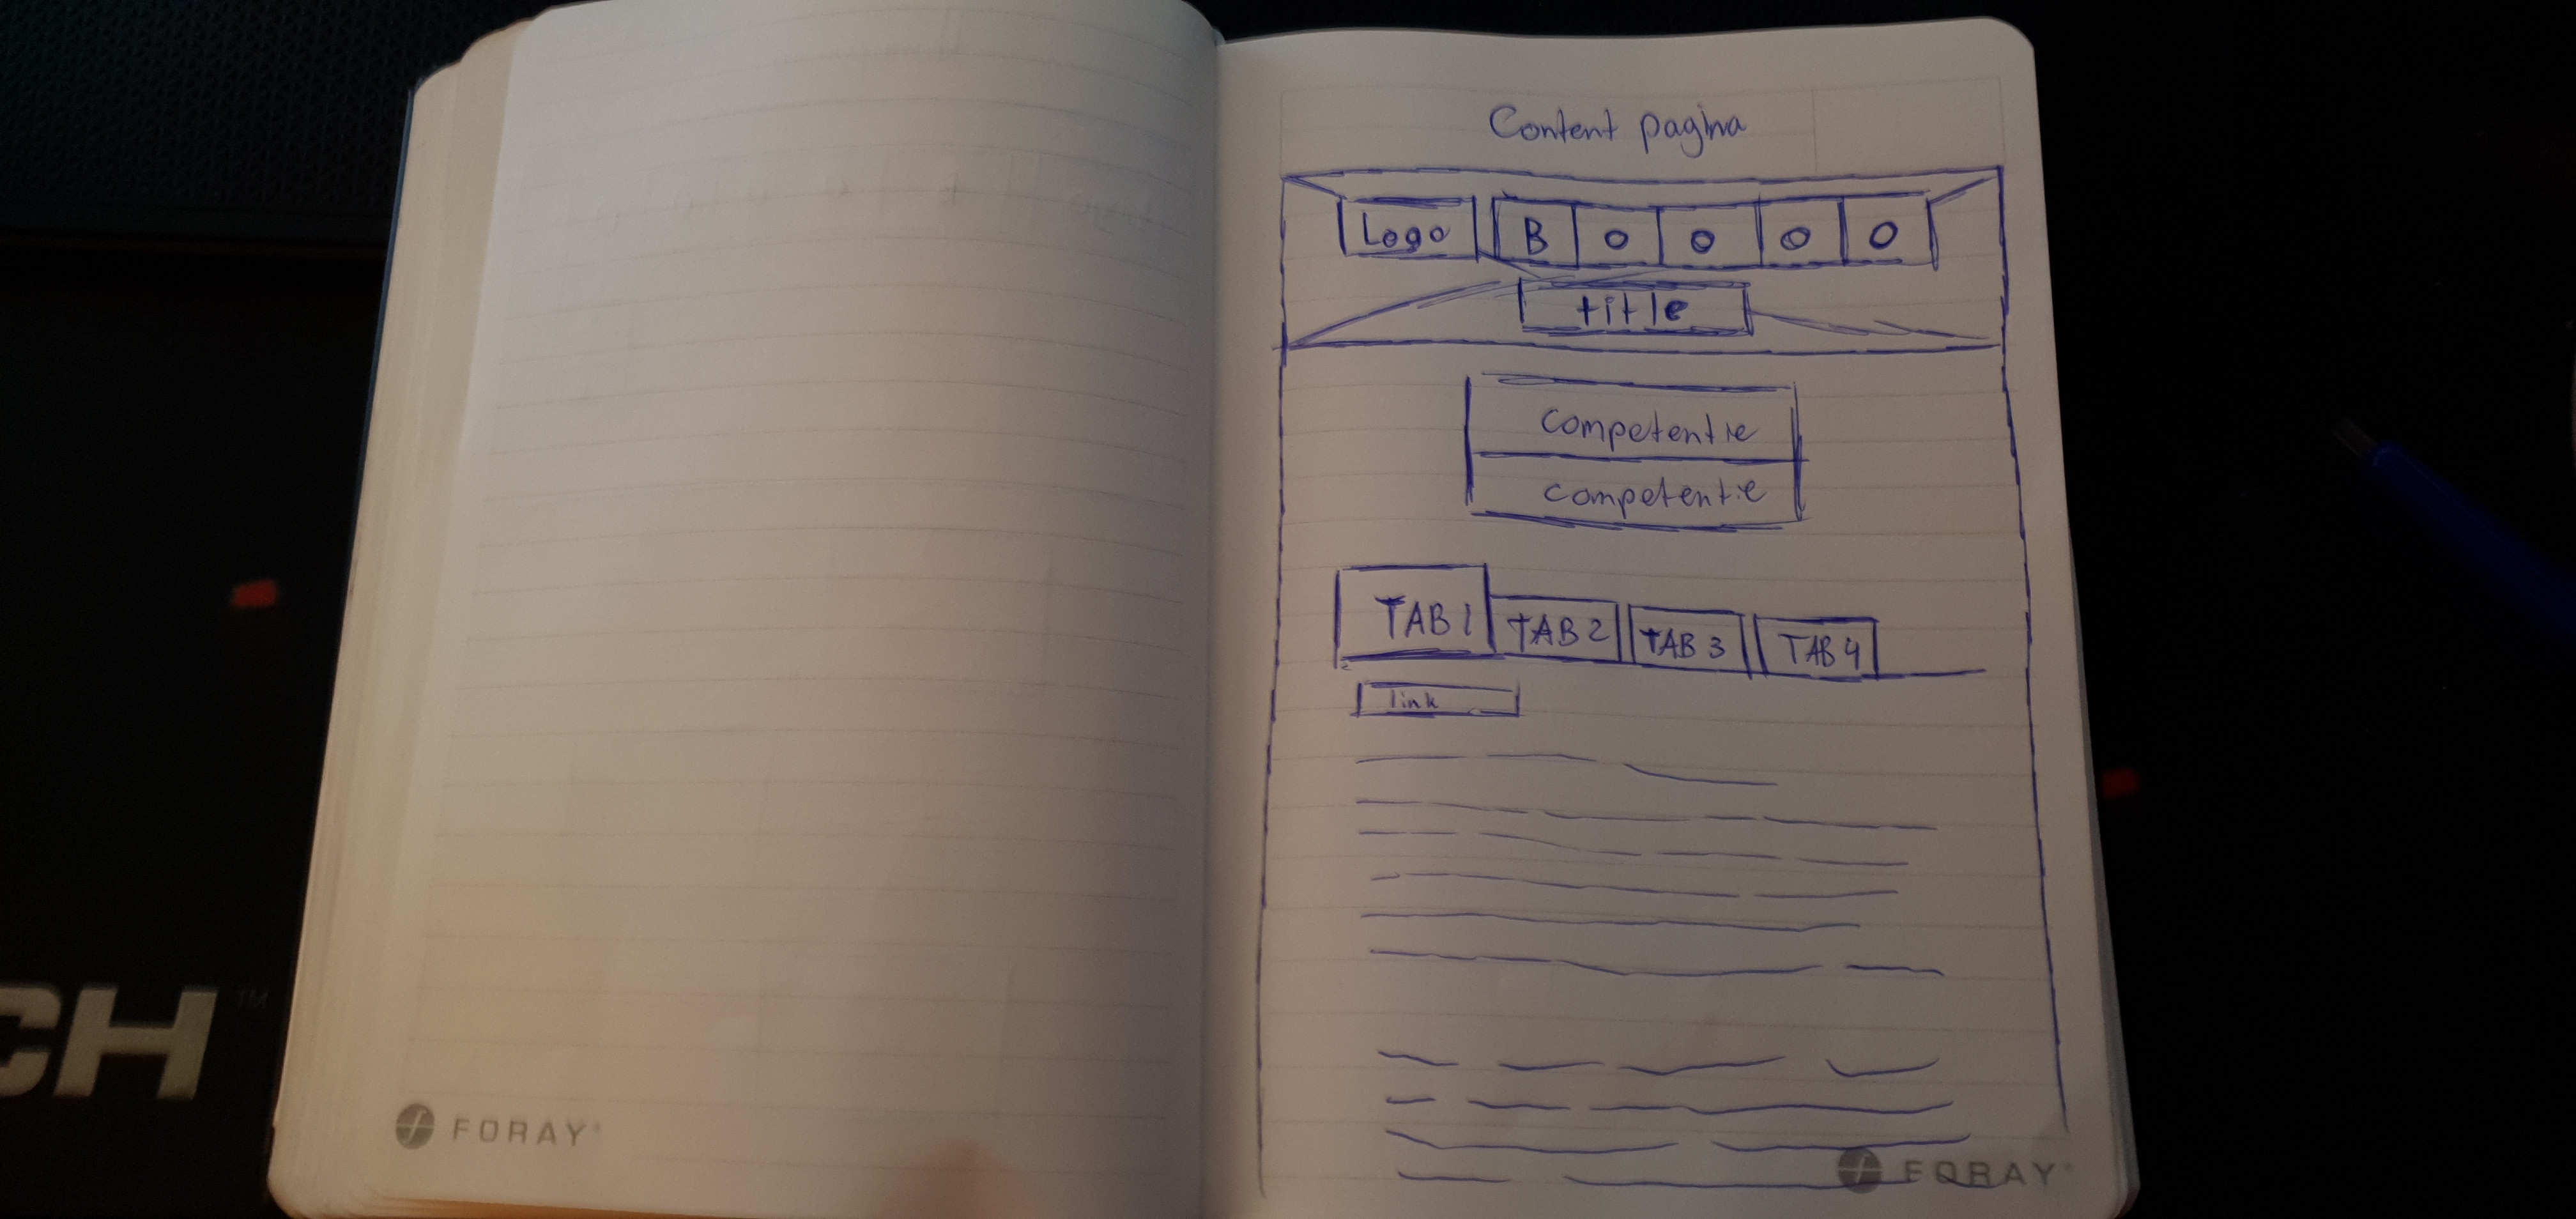 Content pagina
Logo B O O O O
title
competentie
competentie
TAB 1 TAB 2 TAB 3 TAB 4
link
FORAY
FORAY
CH™